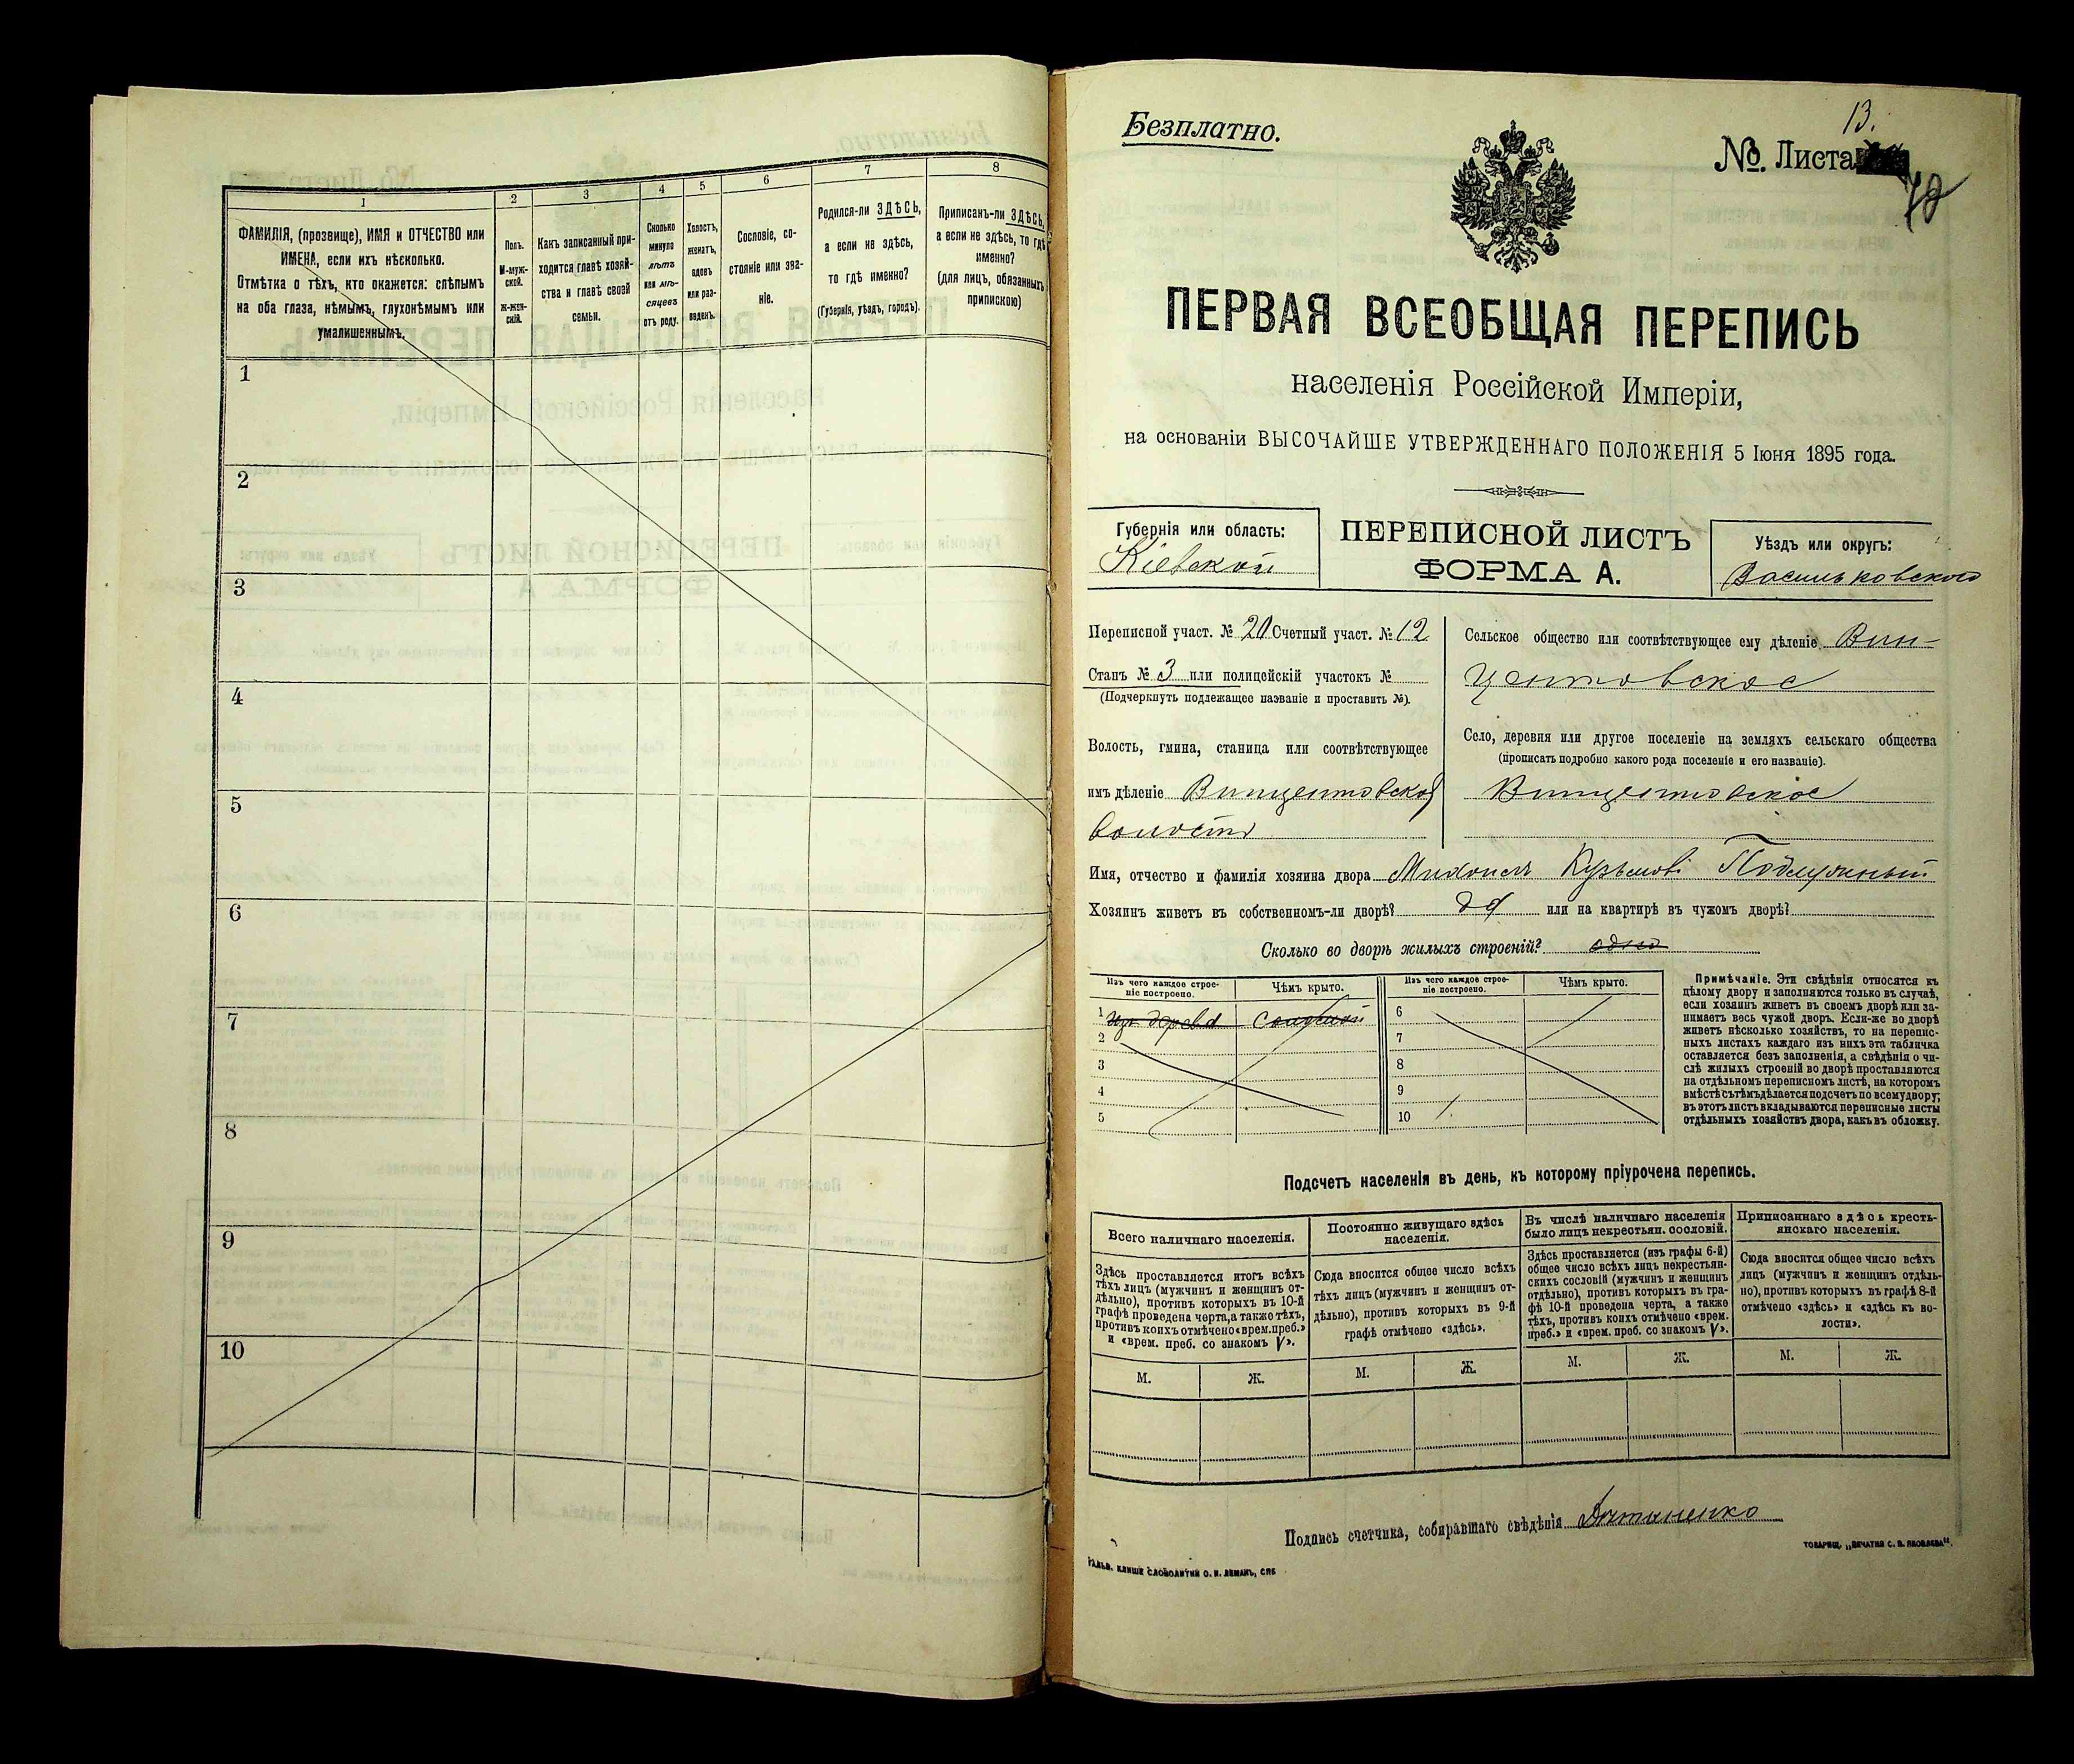 1
2
3
4
5
6
7
8
ФАМИЛІЯ, (прозвище), ИМЯ и ОТЧЕСТВО или
ИМЕНА, если ихъ нѣсколько.
Отмѣтка о тѣхъ, кто окажется: слѣпымъ
на оба глаза, нѣмымъ, глухонѣмымъ или
умалишеннымъ.
Полъ.
М-муж-
ской.
Ж-жен-
скій.
Какъ записанный при-
ходится главѣ хозяй-
ства и главѣ своей
семьи.
Сколько
минуло
лѣтъ
или мѣ-
сяцевъ
отъ роду.
Холостъ,
женатъ,
вдовъ
или раз-
веденъ.
Сословіе, со-
стояніе или зва-
ніе.
Родился-ли ЗДѢСЬ,
а если не здѣсь,
то гдѣ именно?
(Губернія, уѣздъ, городъ).
Приписанъ-ли ЗДѢСЬ,
а если не здѣсь, то гдѣ
именно?
(для лицъ, обязанныхъ
припискою)
1
2
3
4
5
6
7
8
9
10
Безплатно.
13.
№. Листа
ПЕРВАЯ ВСЕОБЩАЯ ПЕРЕПИСЬ
населенія Россійской Имперіи,
на основаніи ВЫСОЧАЙШЕ УТВЕРЖДЕННАГО ПОЛОЖЕНІЯ 5 Іюня 1895 года.
Губернія или область:
Кіевской
ПЕРЕПИСНОЙ ЛИСТЪ
ФОРМА А.
Уѣздъ или округъ:
Васильковскаго
Переписной участ. № 20 Счетный участ. № 12
Станъ № 3 или полицейскій участокъ №
(Подчеркнуть подлежащее названіе и проставить №).
Волость, гмина, станица или соотвѣтствующее
имъ дѣленіе Винцентовской
волости
Сельское общество или соотвѣтствующее ему дѣленіе Вин-
центовское
Село, деревня или другое поселеніе на земляхъ сельскаго общества
(прописать подробно какого рода поселеніе и его названіе).
Винцентовское
Имя, отчество и фамилія хозяина двора Михаилъ Кузьмовъ
Хозяинъ живетъ въ собственномъ-ли дворѣ? да или на квартирѣ въ чужомъ дворѣ?
Сколько во дворѣ жилыхъ строеній? одно
Изъ чего каждое строе-
ніе построено.
Чѣмъ крыто.
Изъ чего каждое строе-
ніе построено.
Чѣмъ крыто.
1 изъ дерева соломой
2
3
4
5
6
7
8
9
10
Примѣчаніе. Эти свѣдѣнія относятся къ
цѣлому двору и заполняются только въ случаѣ,
если хозяинъ живетъ въ своемъ дворѣ или за-
нимаетъ весь чужой дворъ. Если-же во дворѣ
живетъ нѣсколько хозяйствъ, то на перепис-
ныхъ листахъ каждаго изъ нихъ эта табличка
оставляется безъ заполненія, а свѣдѣнія о чи-
слѣ жилыхъ строеній во дворѣ проставляются
на отдѣльномъ переписномъ листѣ, на которомъ
вмѣстѣ съ тѣмъ дѣлается подсчетъ по всему двору;
въ этотъ листъ вкладываются переписные листы
отдѣльныхъ хозяйствъ двора, какъ въ обложку.
Подсчетъ населенія въ день, къ которому пріурочена перепись.
Всего наличнаго населенія.
Здѣсь проставляется итогъ всѣхъ
тѣхъ лицъ (мужчинъ и женщинъ от-
дѣльно), противъ которыхъ въ 10-й
графѣ проведена черта, а также тѣхъ,
противъ коихъ отмѣчено «врем. преб.»
и «врем. преб. со знакомъ V».
Постоянно живущаго здѣсь
населенія.
Сюда вносится общее число всѣхъ
тѣхъ лицъ (мужчинъ и женщинъ от-
дѣльно), противъ которыхъ въ 9-й
графѣ отмѣчено «здѣсь».
Въ числѣ наличнаго населенія
было лицъ некрестьян. сословій.
Здѣсь проставляется (изъ графы 6-й)
общее число всѣхъ лицъ некрестьян-
скихъ сословій (мужчинъ и женщинъ
отдѣльно), противъ которыхъ въ гра-
фѣ 10-й проведена черта, а также
тѣхъ, противъ коихъ отмѣчено «врем.
преб.» и «врем. преб. со знакомъ V».
Приписаннаго здѣсь кресть-
янскаго населенія.
Сюда вносится общее число всѣхъ
лицъ (мужчинъ и женщинъ отдѣль-
но), противъ которыхъ въ графѣ 8-й
отмѣчено «здѣсь» и «здѣсь къ во-
лости».
М.
Ж.
М.
Ж.
М.
Ж.
М.
Ж.
Подпись счетчика, собиравшаго свѣдѣнія
ГАЛЬВ. КЛИШЕ СЛОВОЛИТНИ О. И. ЛЕМАНЪ, СПБ
ТОВАРИЩ. „ПЕЧАТНЯ С. П. ЯКОВЛЕВА".